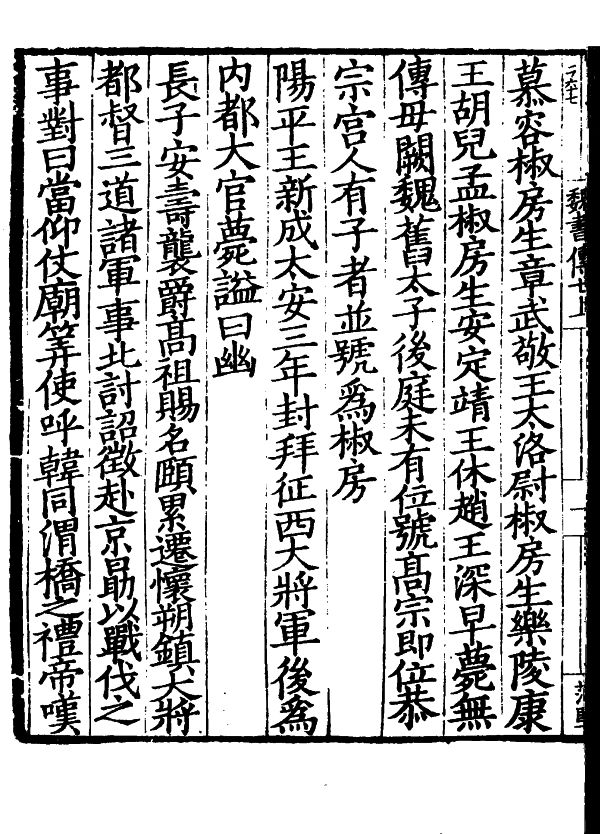 魏書傳
慕容椒房生章武敬王太洛尉椒房生樂陵康
王胡兒孟椒房生安定靖王休趙王深早薨無
傳母闕魏舊太子後庭未有位號髙宗即位恭
宗宫人有子者並號爲椒房
陽平王新成太安三年封拜征西大將軍後爲
内都大官薨謚曰幽
長子安壽襲爵髙祖賜名頥累遷懷朔鎮大將
都督三道諸軍事北討詔徵赴京勗以戰伐之
事對曰當仰仗廟筭使呼韓同渭橋之禮帝嘆